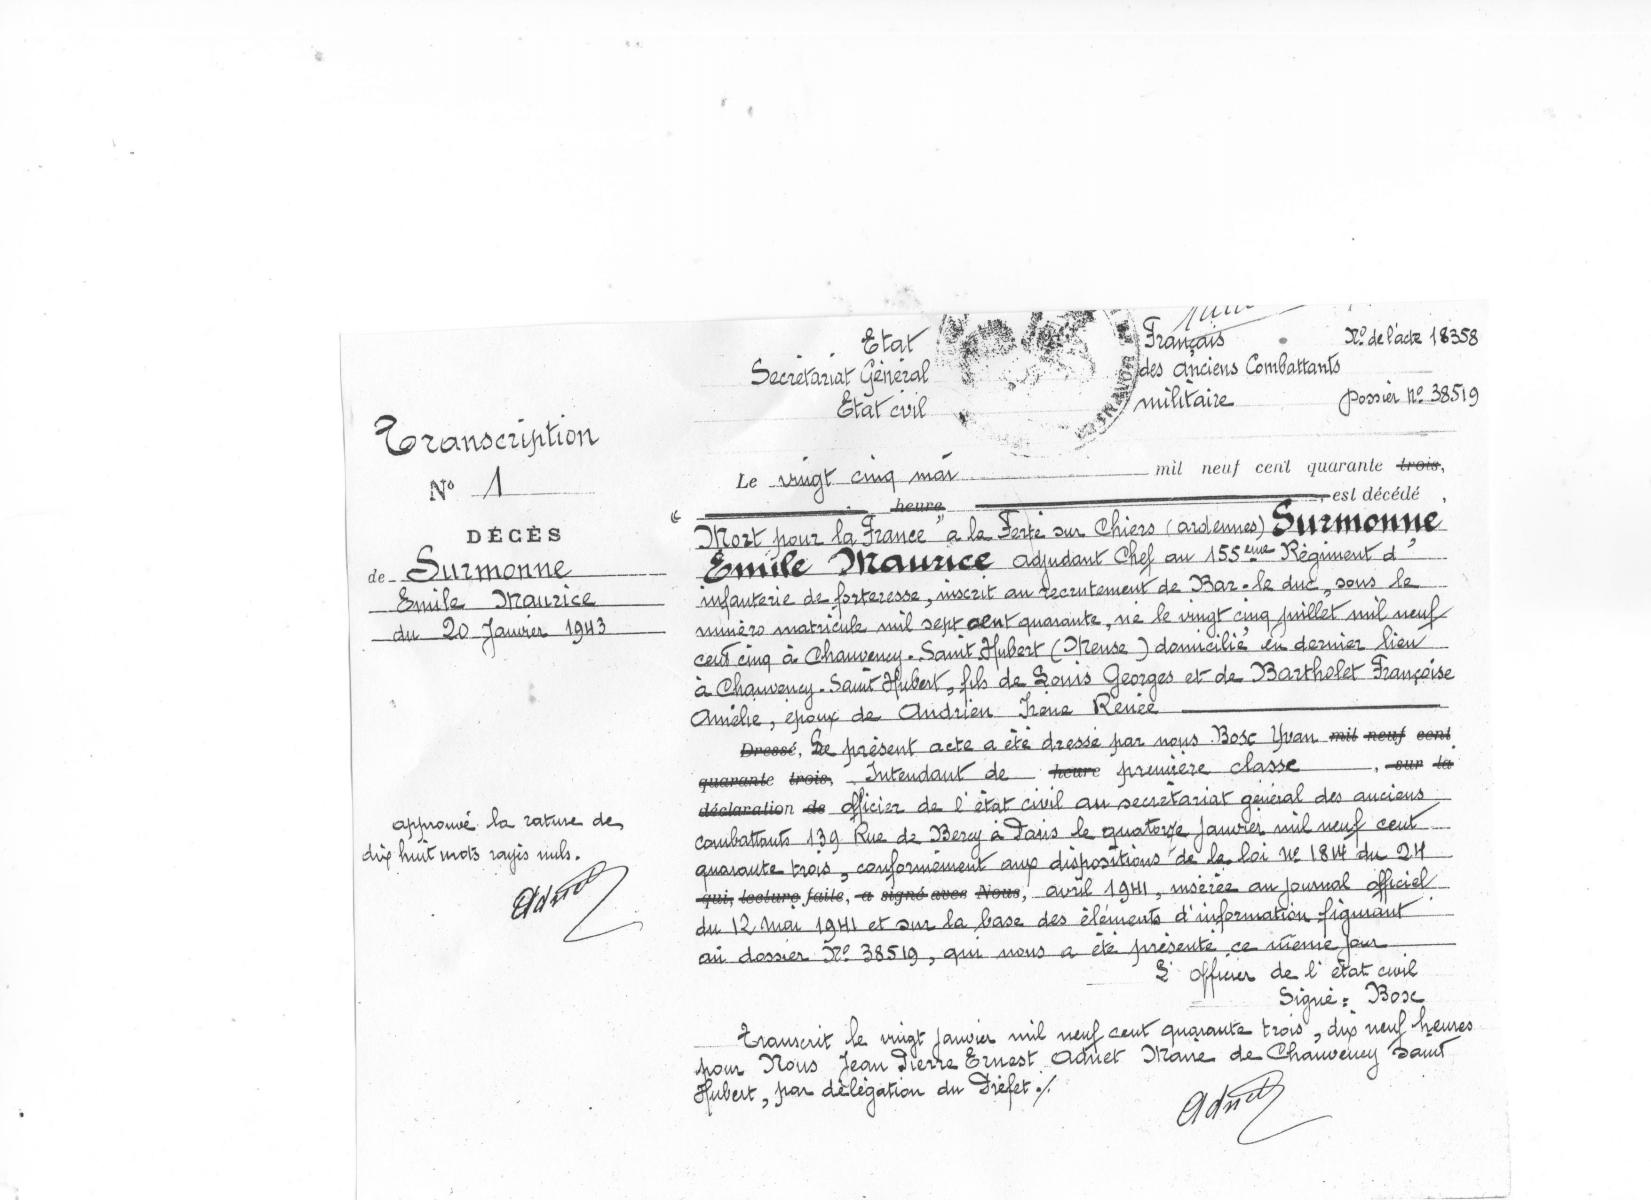 Etat Français N° de l'acte 18358
Secrétariat Général des Anciens Combattants
Etat civil militaire Dossier N° 38519
Transcription
N° 1
DÉCÈS
de Surmonne
Emile Maurice
du 20 Janvier 1943
approuvé la rature de
dix huit mots rayés nuls.
Adnet
Le vingt cinq mai mil neuf cent quarante trois,
heure est décédé
"Mort pour la France" a la Ferté sur Chiers (ardennes) Surmonne
Emile Maurice adjudant Chef au 155ème Régiment d'
infanterie de forteresse, inscrit au recrutement de Bar-le duc, sous le
numéro matricule mil sept cent quarante, né le vingt cinq juillet mil neuf
cent cinq à Chauvency-Saint Hubert (Meuse) domicilié en dernier lieu
à Chauvency-Saint Hubert, fils de Louis Georges et de Bartholet Françoise
Amélie, époux de Andrien Irène Renée
Dressé, Le présent acte a été dressé par nous Bosc Yvan mil neuf cent
quarante trois, Intendant de heure première classe, sur la
déclaration de officier de l'état civil au secrétariat général des anciens
combattants 139 Rue de Bercy à Paris le quatorze janvier mil neuf cent
quarante trois, conformément aux dispositions de la loi n° 1814 du 24
qui, lecture faite, a signé avec Nous, avril 1941, insérée au journal officiel
du 12 Mai 1941 et sur la base des éléments d'information figurant
au dossier N° 38519, qui nous a été présenté ce même jour
L'officier de l'état civil
Signé: Bosc
Transcrit le vingt janvier mil neuf cent quarante trois, dix neuf heures
pour Nous Jean Pierre Ernest Adnet Maire de Chauvency Saint
Hubert, par délégation du Préfet ./.
Adnet